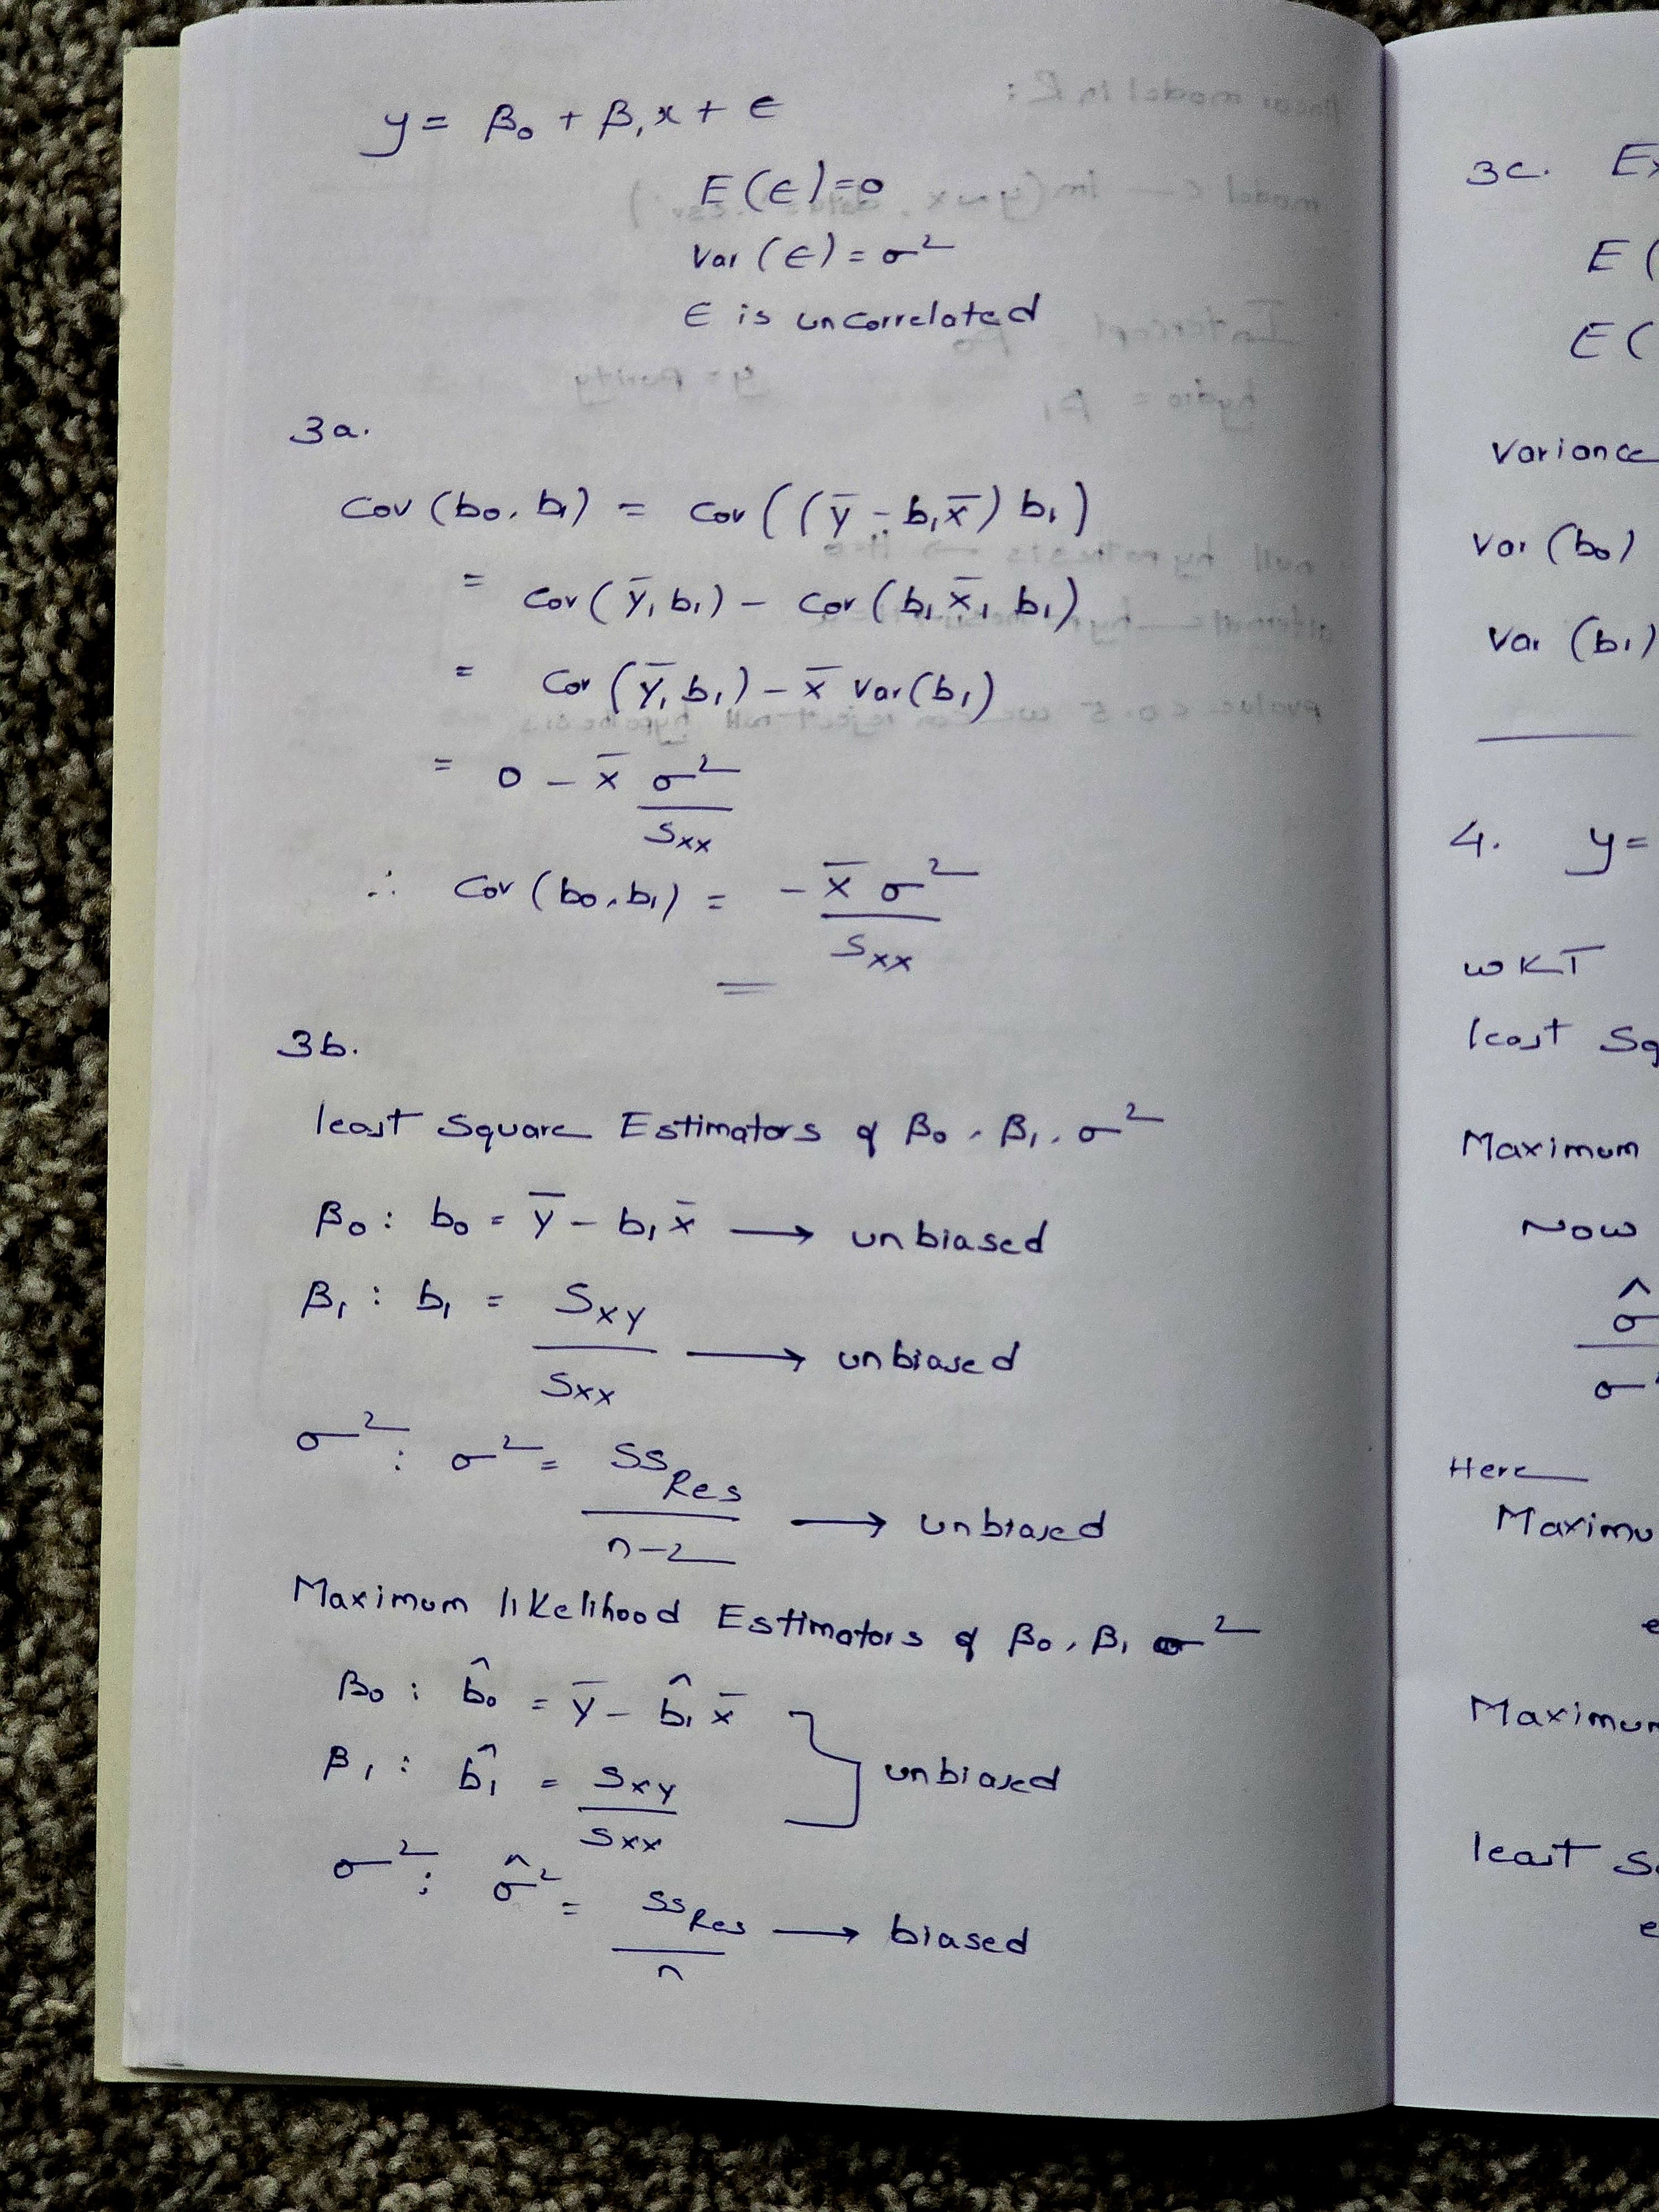 y = β₀ + β₁x + ϵ
E(ϵ)=0
Var (ϵ) = σ²
ϵ is uncorrelated
3a.
Cov (b₀, b₁) = Cov((ȳ - b₁x̄) b₁)
= Cov(ȳ, b₁) - Cov(b₁x̄, b₁)
= Cov(ȳ, b₁) - x̄ Var(b₁)
= 0 - x̄ σ²/Sxx
∴ Cov(b₀, b₁) = -x̄ σ²/Sxx
3b.
least Square Estimators of β₀, β₁, σ²
β₀ : b₀ = ȳ - b₁x̄ → unbiased
β₁ : b₁ = Sxy/Sxx → unbiased
σ² : σ² = SS_Res/n-2 → unbiased
Maximum likelihood Estimators of β₀, β₁ σ²
β₀ : b̂₀ = ȳ - b̂₁ x̄
β₁ : b̂₁ = Sxy/Sxx } unbiased
σ² : σ̂² = SS_Res/n → biased
3c. Ex
E(
E(
Variance
Var (b₀)
Var (b₁)
4. y=
WKT
least Sq
Maximum
Now
σ̂
σ
Here
Maximu
e
Maximum
least S
e